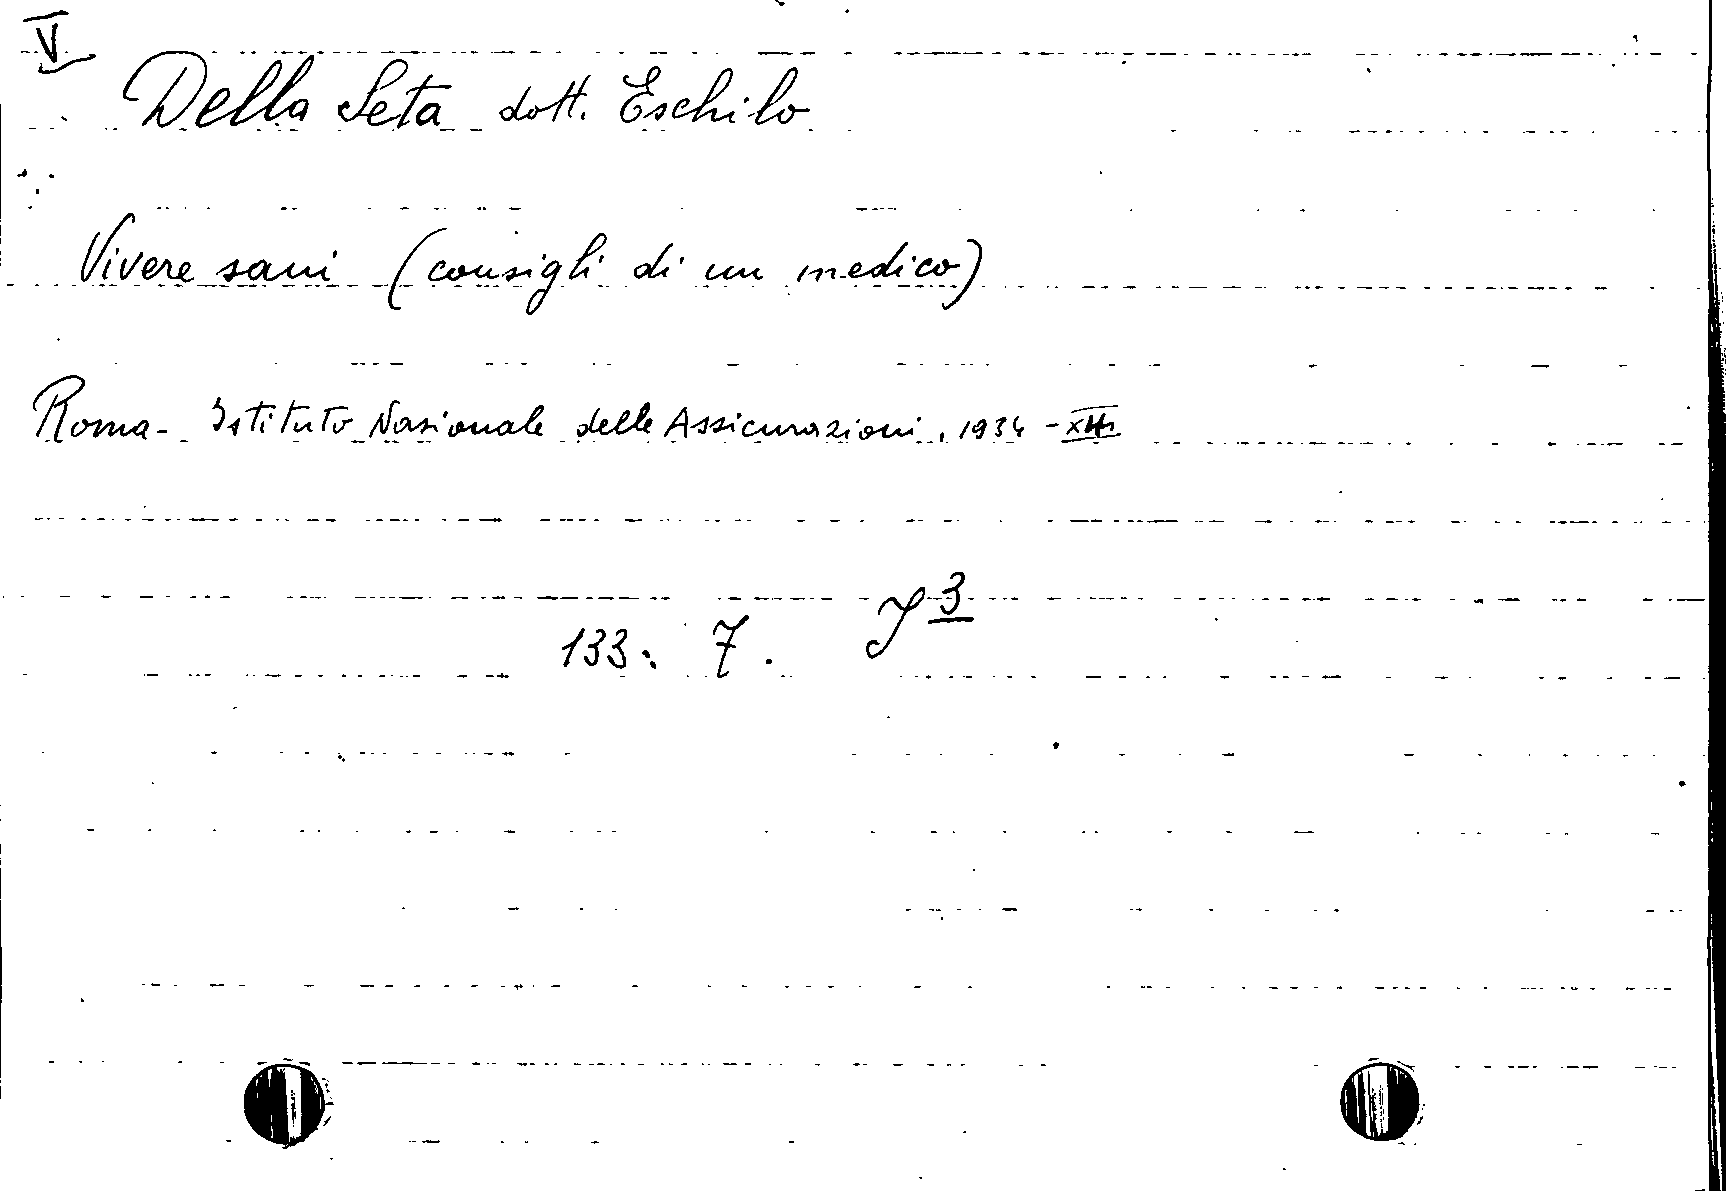 V
Della Seta dott. Eschilo
Vivere sani (consigli di un medico)
Roma - Istituto Nazionale delle Assicurazioni, 1934 - XII
133. 7. J 3